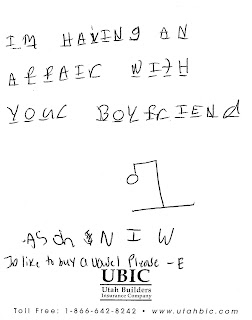 IM HAVING AN
AFFAIR WITH
YOUR BOYFRIEND
I'd like to buy a vowel Please - E
UBIC
Utah Builders
Insurance Company
Toll Free: 1-866-642-8242 • www.utahbic.com